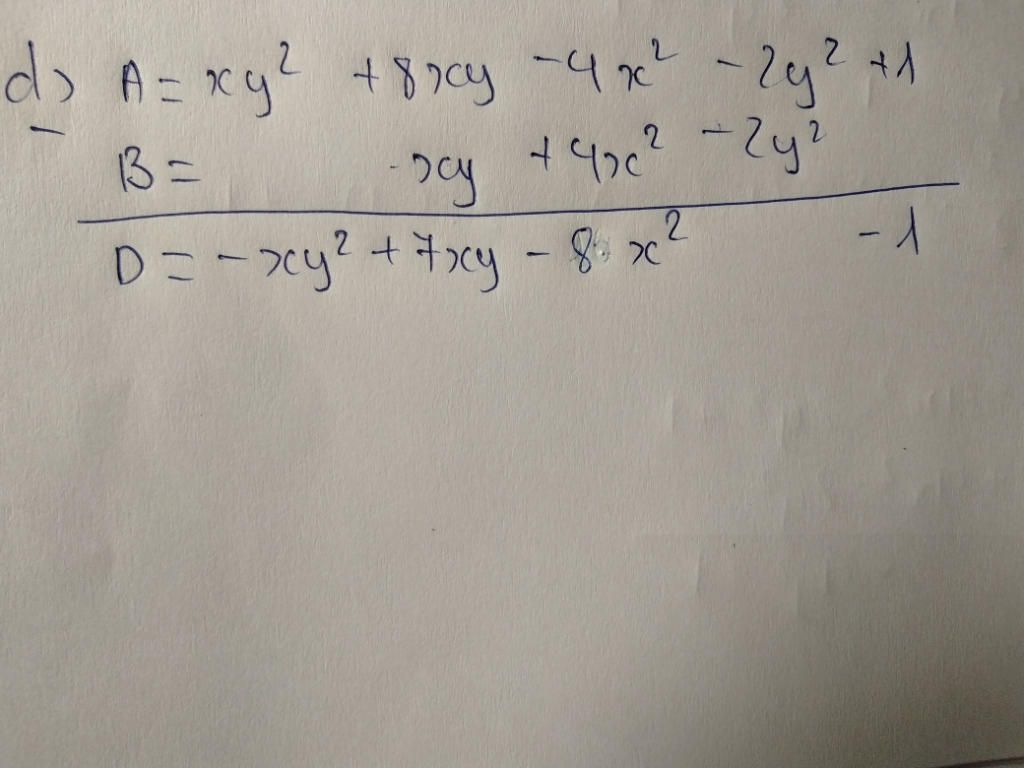 d) A = xy² + 8xy - 4x² - 2y² + 1
- B = - xy + 4x² - 2y²
D = - xy² + 7xy - 8 x² - 1